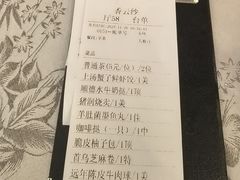 香云纱
厅58 台单
菜品
普通茶(5元/位)/2位
上汤蟹子鲜虾饺/1美
顺德水牛奶挞/1顶
猪润烧卖/1美
羊肚菌墨鱼丸/1佳
咖啡挞（一只）/1中
脆皮柚子包/1顶
首乌芝麻卷/1特
远年陈皮牛肉球/1美